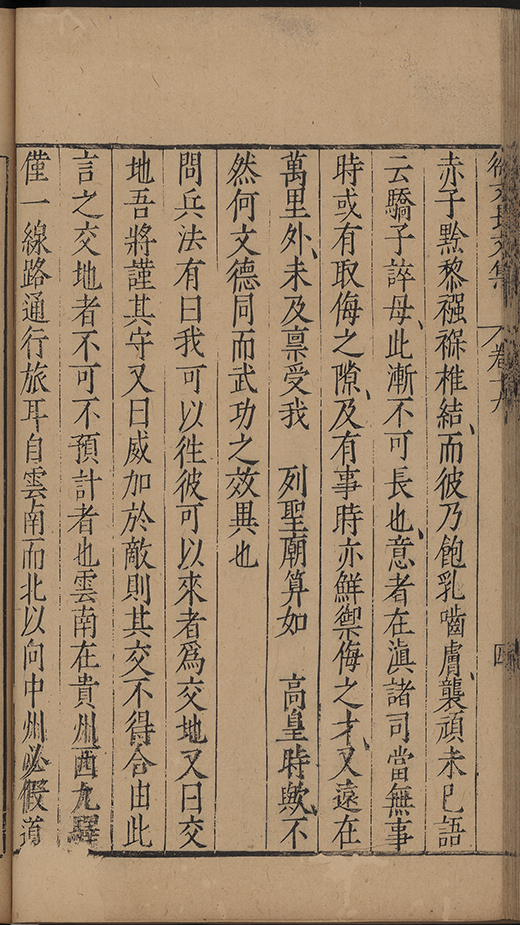 徐文長文集 卷十九 四
赤子黔黎襁褓椎結、而彼乃飽乳嚙膚、襲頑未已語
云驕子誶母、此漸不可長也、意者在滇諸司當無事
時或有取侮之隙、及有事時亦鮮禦侮之才、又遠在
萬里外、未及稟受我 列聖廟算如 高皇時歟、不
然何文德同而武功之效異也
問兵法有曰我可以徃彼可以來者爲交地又曰交
地吾將謹其守又曰威加於敵則其交不得合由此
言之交地者不可不預計者也雲南在貴州西九驛
僅一線路通行旅耳自雲南而北以向中州必假道